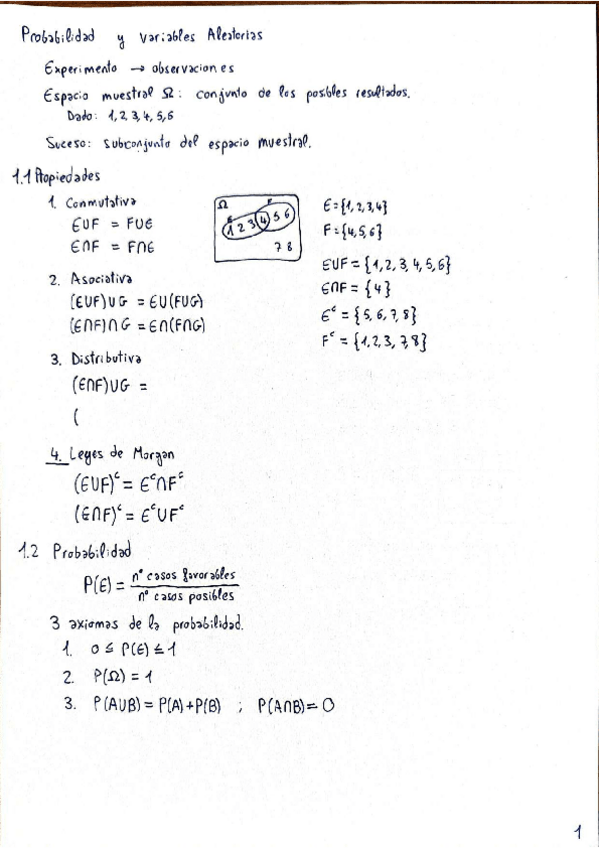 Probabilidad y Variables Aleatorias
Experimento → observaciones
Espacio muestral Ω: conjunto de los posibles resultados.
Dado: 1, 2, 3, 4, 5, 6
Suceso: subconjunto del espacio muestral.
1.1 Propiedades
1. Conmutativa
E∪F = F∪E
E∩F = F∩E
Ω
E
F
1 2 3 4 5 6
7 8
E={1,2,3,4}
F={4,5,6}
E∪F = {1,2,3,4,5,6}
E∩F = {4}
Eᶜ = {5,6,7,8}
Fᶜ = {1,2,3,7,8}
2. Asociativa
(E∪F)∪G = E∪(F∪G)
(E∩F)∩G = E∩(F∩G)
3. Distributiva
(E∩F)∪G =
(
4. Leyes de Morgan
(E∪F)ᶜ = Eᶜ∩Fᶜ
(E∩F)ᶜ = Eᶜ∪Fᶜ
1.2 Probabilidad
P(E) = nº casos favorables / nº casos posibles
3 axiomas de la probabilidad.
1. 0 ≤ P(E) ≤ 1
2. P(Ω) = 1
3. P(A∪B) = P(A)+P(B) ; P(A∩B) = 0
1